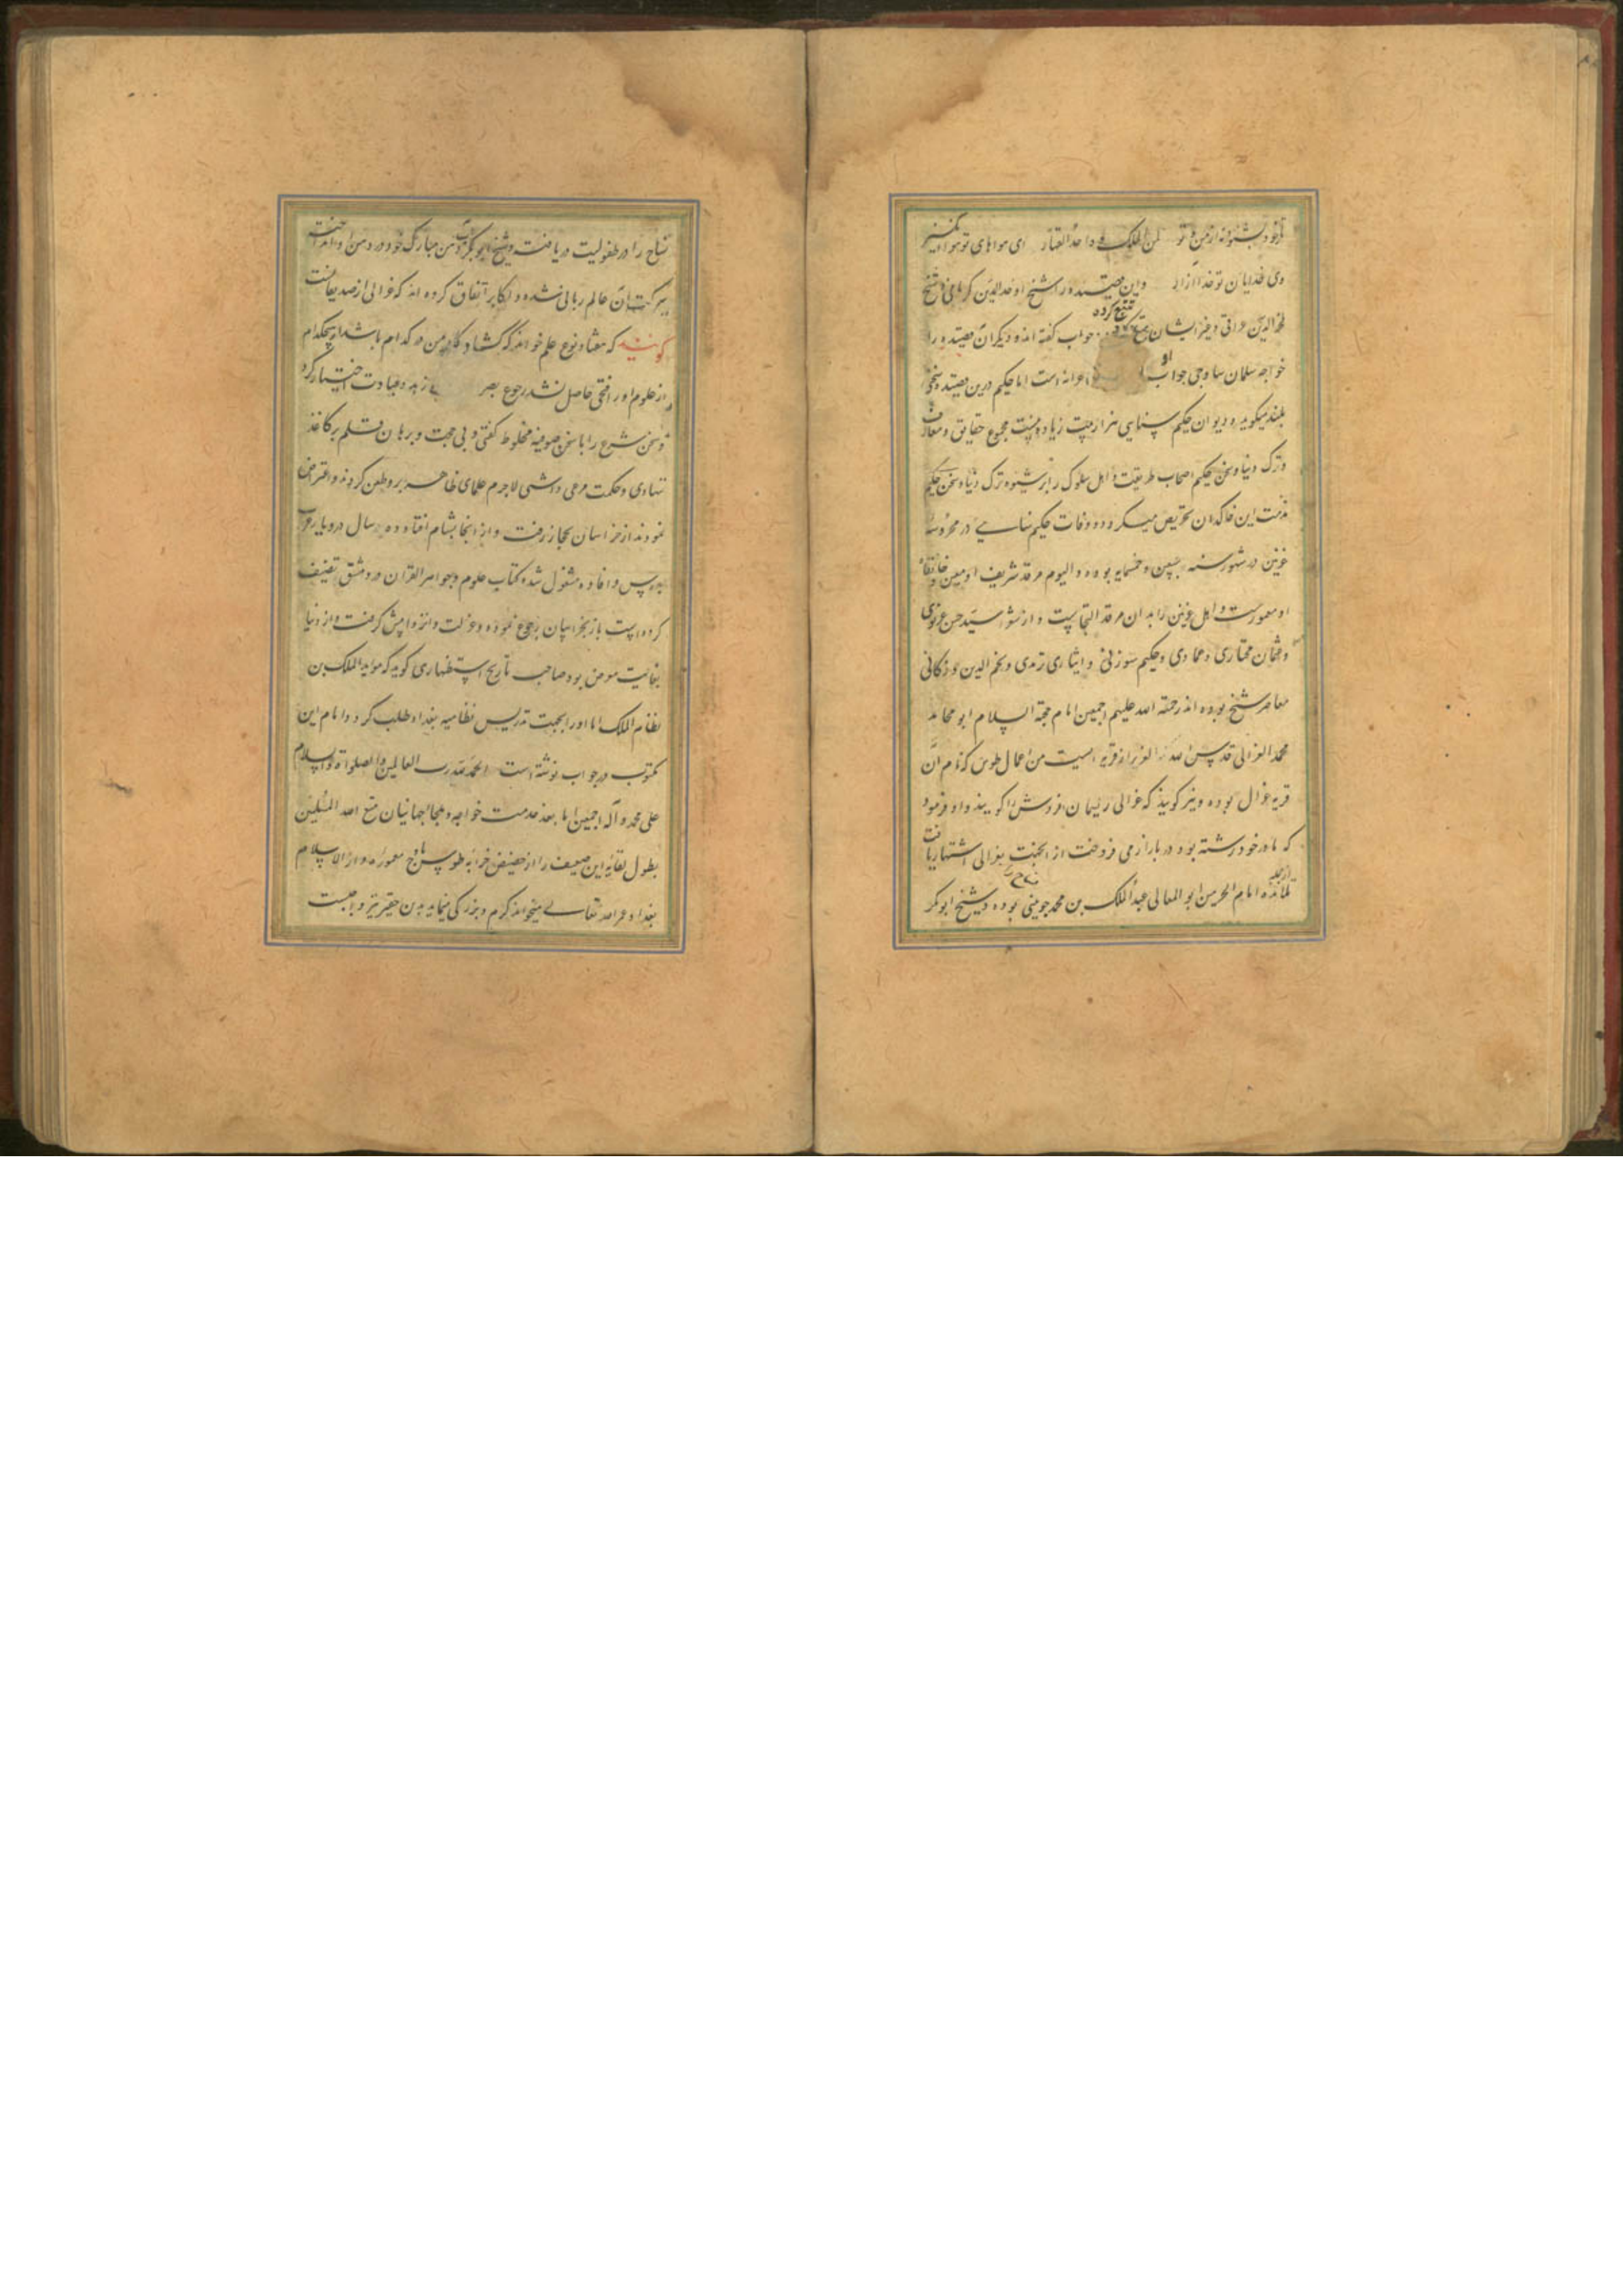 تا ز خود بشنود نه از من و تو لمن الملک واحد القهار ای هواهای تو هوا انگیز
وی خدایان تو خدا آزار و این قصیده را شیخ اوحدالدین کرمانی و شیخ
فخرالدین عراقی و غیر ایشان تتبع کرده جواب گفته اند و دیگر آن قصیده را
خواجه سلمان ساوجی جواب او است اما حکیم درین قصیده سخن
بلند میگوید و دیوان حکیم سنایی هزار بیت زیاده است مجموع حقایق و معارف
و ترک دنیا و سخن حکیم اصحاب طریقت و اهل سلوک را بر شیوه ترک دنیا و سخن حکیم
مذمت این خاکدان تحریص میکرد و وفات حکیم سنایی در محروسه
غزنین در شهور سنه و خمسمایه بوده و الیوم مرقد شریف او معین و خانقاه
او معمورست و اهل غزنین را بدان مرقد التجاییست و از شعرا سید حسن غزنوی
و عثمان مختاری و عمادی و حکیم سوزنی و انباری ترمدی و نجم الدین
معاصر شیخ بوده اند رحمة الله علیهم اجمعین امام حجة الاسلام ابو حامد
محمد الغزالی قدس الله سره العزیز از قریه ایست من اعمال طوس که نام آن
قریه غزال بوده و نیز گویند که غزالی ریسمان فروش را گویند و او فرمود
که مادر خود رشته بود در بازار می فروخت از آن جهت بغزالی اشتهار یافت
از جمله تلامذه امام الحرمین ابو المعالی عبدالملک بن محمد جوینی بوده و شیخ ابوبکر
نساج را در طفولیت دریافت و شیخ ابوبکر آب دهن مبارک خود در دهن او انداخت
ببرکت آن عالم ربانی شده و اکابر اتفاق کرده اند که غزالی از صدیقانست
گویند که هفتاد نوع علم خواند که گشاد کار من در کدام باشد از هیچکدام
از علوم او را فتحی حاصل نشد رجوع زهد و عبادت اختیار کرد
و سخن شرع را با سخن صوفیه مخلوط گفتی و بی حجت و برهان قلم بر کاغذ
ننهادی و حکمت مرعی داشتی لاجرم علمای ظاهر برو طعن کردند و اعتراض
نمودند از خراسان بحجاز رفت و از آنجا بشام افتاد و ده سال در دیار عرب
بدرس و افاده مشغول شده کتاب علوم و جواهر القرآن در دمشق تصنیف
کرده است باز بخراسان رجوع نموده و عزلت و انزوا پیش گرفت و از دنیا
بغایت معرض بود صاحب تاریخ استظهاری گوید که مؤید الملک بن
نظام الملک امام را بجهت تدریس نظامیه بغداد طلب کرد و امام این
مکتوب در جواب نوشته است الحمد لله رب العالمین و الصلوة و السلام
علی محمد و آله اجمعین اما بعد خدمت خواجه و ملجا جهانیان متع الله المسلمین
بطول بقائه این ضعیف را از حضیض خرابه طوس باوج معموره دار السلام
بغداد عمره الله تعالی میخواند کرم و بزرگی مینماید بدین حقیر نیز واجبست